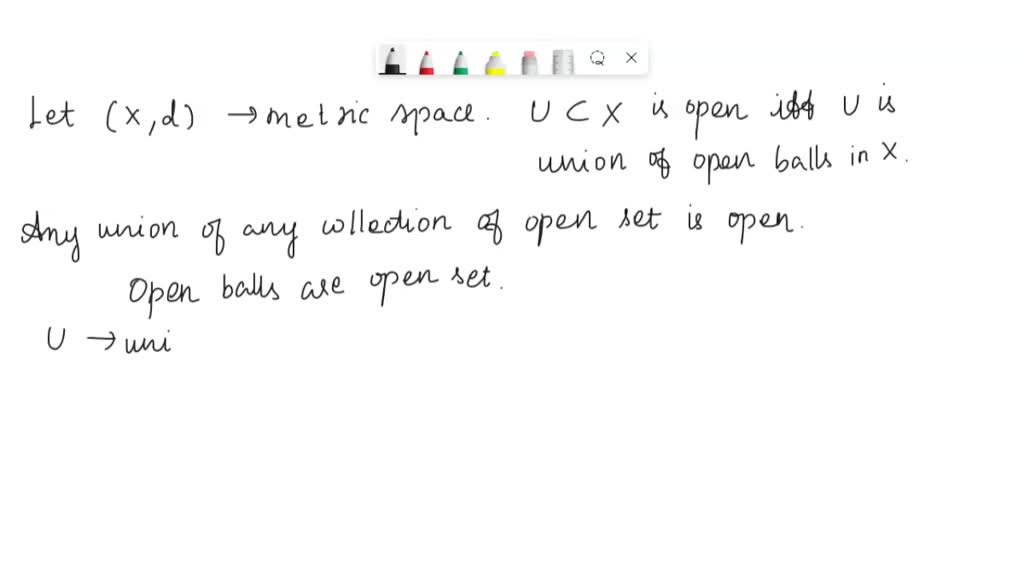 Let (X,d) → metric space. U ⊂ X is open iff U is
union of open balls in X.
Any union of any collection of open set is open.
Open balls are open set.
U → uni